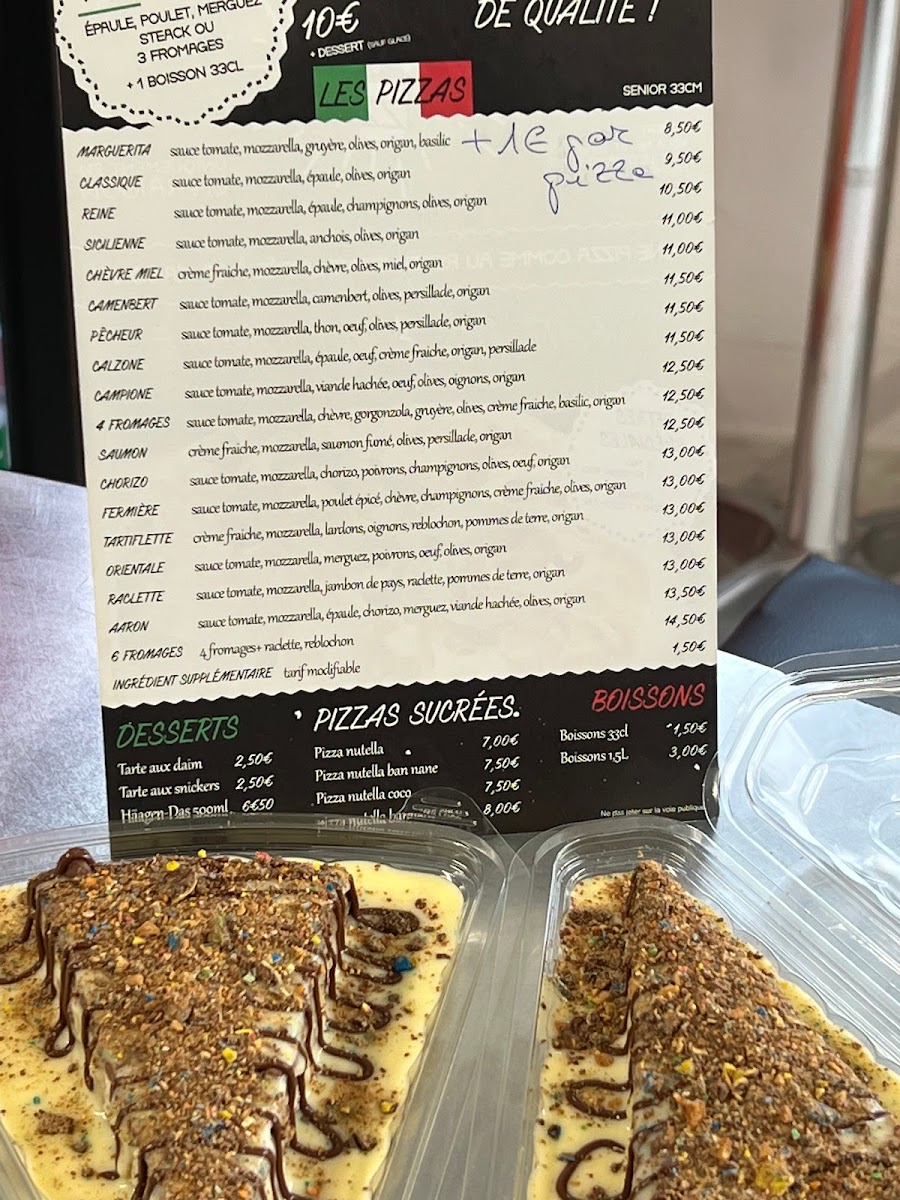 ÉPAULE, POULET, MERGUEZ
STEACK OU
3 FROMAGES
+ 1 BOISSON 33CL
10€
+ DESSERT (SAUF GLACE)
DE QUALITÉ !
LES PIZZAS
SENIOR 33CM
MARGUERITA sauce tomate, mozzarella, gruyère, olives, origan, basilic 8,50€
+ 1€ par
pizza
CLASSIQUE sauce tomate, mozzarella, épaule, olives, origan 9,50€
REINE sauce tomate, mozzarella, épaule, champignons, olives, origan 10,50€
SICILIENNE sauce tomate, mozzarella, anchois, olives, origan 11,00€
CHÈVRE MIEL crème fraiche, mozzarella, chèvre, olives, miel, origan 11,00€
CAMENBERT sauce tomate, mozzarella, camenbert, olives, persillade, origan 11,50€
PÊCHEUR sauce tomate, mozzarella, thon, oeuf, olives, persillade, origan 11,50€
CALZONE sauce tomate, mozzarella, épaule, oeuf, crème fraiche, origan, persillade 11,50€
CAMPIONE sauce tomate, mozzarella, viande hachée, oeuf, olives, oignons, origan 12,50€
4 FROMAGES sauce tomate, mozzarella, chèvre, gorgonzola, gruyère, olives, crème fraiche, basilic, origan 12,50€
SAUMON crème fraiche, mozzarella, saumon fumé, olives, persillade, origan 12,50€
CHORIZO sauce tomate, mozzarella, chorizo, poivrons, champignons, olives, oeuf, origan 13,00€
FERMIÈRE sauce tomate, mozzarella, poulet épicé, chèvre, champignons, crème fraiche, olives, origan 13,00€
TARTIFLETTE crème fraiche, mozzarella, lardons, oignons, reblochon, pommes de terre, origan 13,00€
ORIENTALE sauce tomate, mozzarella, merguez, poivrons, oeuf, olives, origan 13,00€
RACLETTE sauce tomate, mozzarella, jambon de pays, raclette, pommes de terre, origan 13,00€
AARON sauce tomate, mozzarella, épaule, chorizo, merguez, viande hachée, olives, origan 13,50€
6 FROMAGES 4 fromages+ raclette, reblochon 14,50€
INGRÉDIENT SUPPLÉMENTAIRE tarif modifiable 1,50€
DESSERTS
Tarte aux daim 2,50€
Tarte aux snickers 2,50€
Häagen-Das 500ml 6€50
PIZZAS SUCRÉES
Pizza nutella 7,00€
Pizza nutella ban nane 7,50€
Pizza nutella coco 7,50€
8,00€
BOISSONS
Boissons 33cl 1,50€
Boissons 1,5L 3,00€
Ne pas jeter sur la voie publique